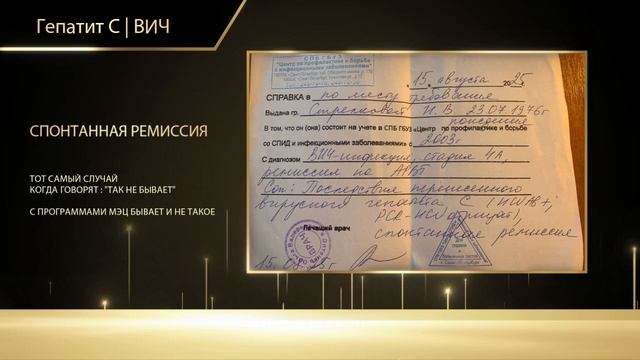 Гепатит С | ВИЧ
СПОНТАННАЯ РЕМИССИЯ
ТОТ САМЫЙ СЛУЧАЙ
КОГДА ГОВОРЯТ : "ТАК НЕ БЫВАЕТ"
С ПРОГРАММАМИ МЭЦ БЫВАЕТ И НЕ ТАКОЕ
СПб ГБУЗ
"Центр по профилактике и борьбе
с инфекционными заболеваниями"
15 августа 2025 г.
СПРАВКА в по месту требования
Выдана гр. Стрелковой Н. В 23.07.1976г
В том, что он (она) состоит на учете в СПБ ГБУЗ «Центр по профилактике и борьбе
со СПИД и инфекционными заболеваниями» с 2003г
С диагнозом ВИЧ-инфекция, стадия 4А,
ремиссия по АРВТ
Соп: Последствия перенесенного
вирусного гепатита С (HCVAb+,
PCR-HCV отрицат),
спонтанная ремиссия
Лечащий врач
ВРАЧ
Для
справок
15.08.25г